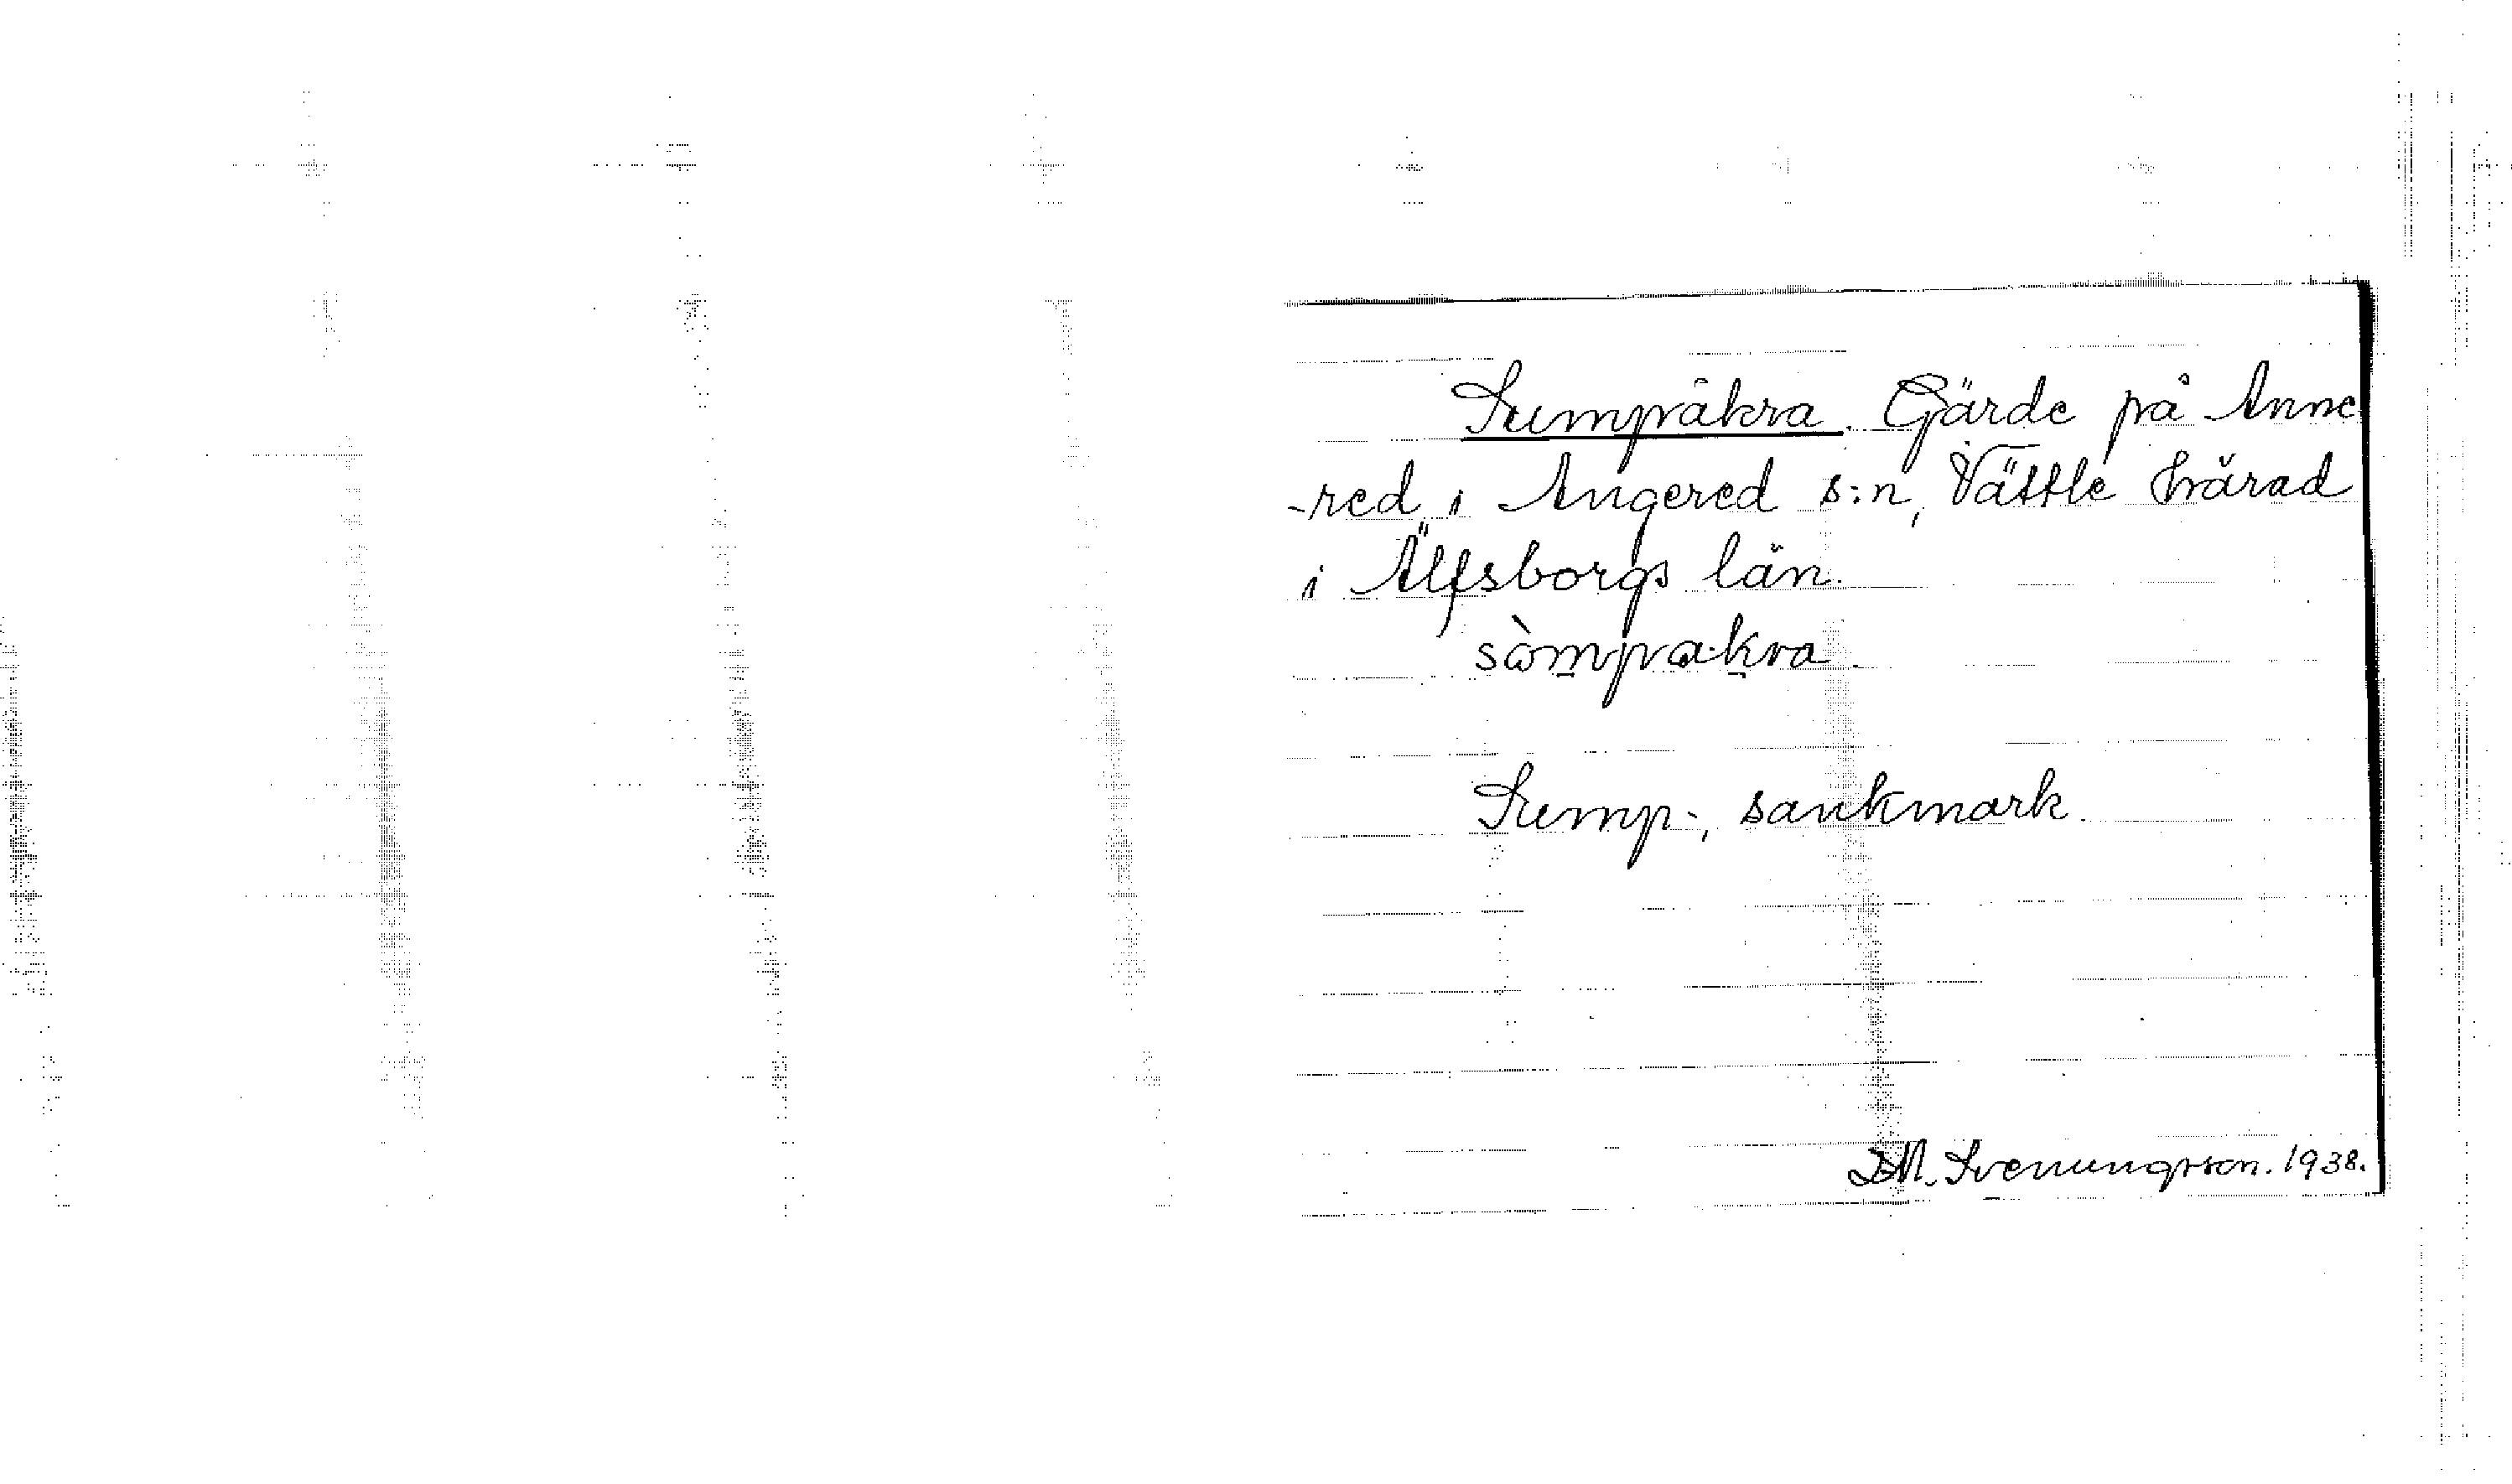 Sumpåkra. Gärde på Anne
-red i Angered s:n, Vättle härad
i Älfsborgs län.
sòmpa·kra.
Sump-, sankmark.
D.M. Svenungsson. 1938.